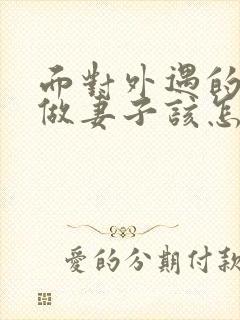 而對外遇的
做妻子該怎
愛的分期付款